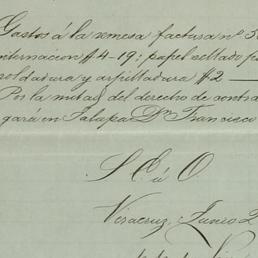 Gastos á la remesa factura nº 3
internacion $4-19; papel sellado p
soldadura y arpilladura $2 —
Por la mitad del derecho de contra
gará en Jalapa D. Francisco
S E ú O.
Veracruz, Junio 2